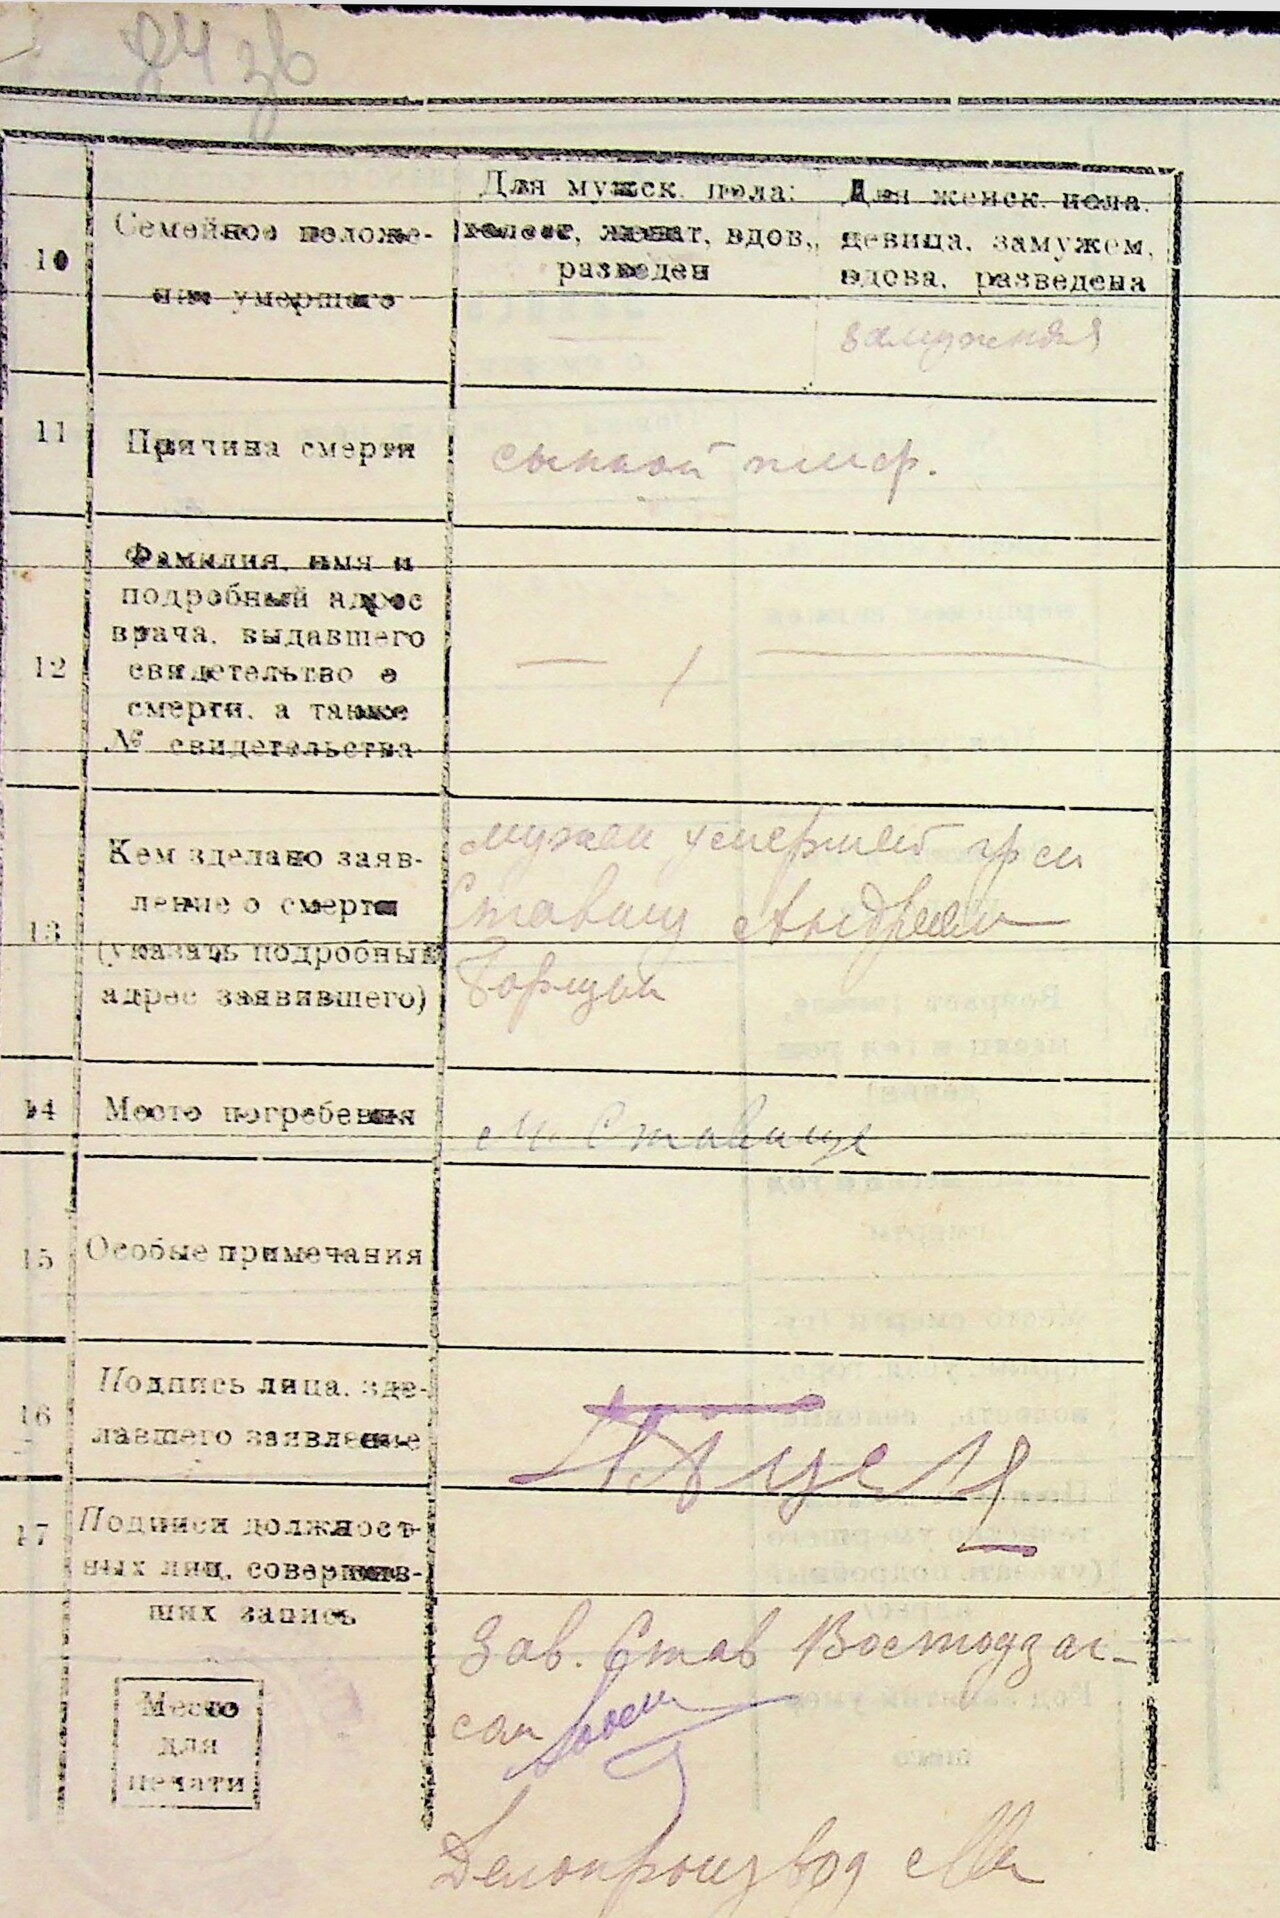 Для мужск. пола: Для женск. пола.
10 Семейное положе- холост, женат, вдов, девица, замужем,
разведен вдова, разведена
ния умершего
замужняя
11 Причина смерти сыпной тиф.
Фамилия, имя и
подробный адрес
врача, выдавшего
12 свидетельство о
смерти, а также
№ свидетельства
мужем умершей гр ем
Кем зделано заяв-
ление о смерти Ставищ Андреем
13
(указать подробный
адрес заявившего)
14 Место погребения м. Ставище
15 Особые примечания
Подпись лица, зде-
16 лавшего заявление
17 Подписи должност-
ных лиц, совершив-
ших запись
Зав. Став
Место сом
для
печати
Делопроизвод